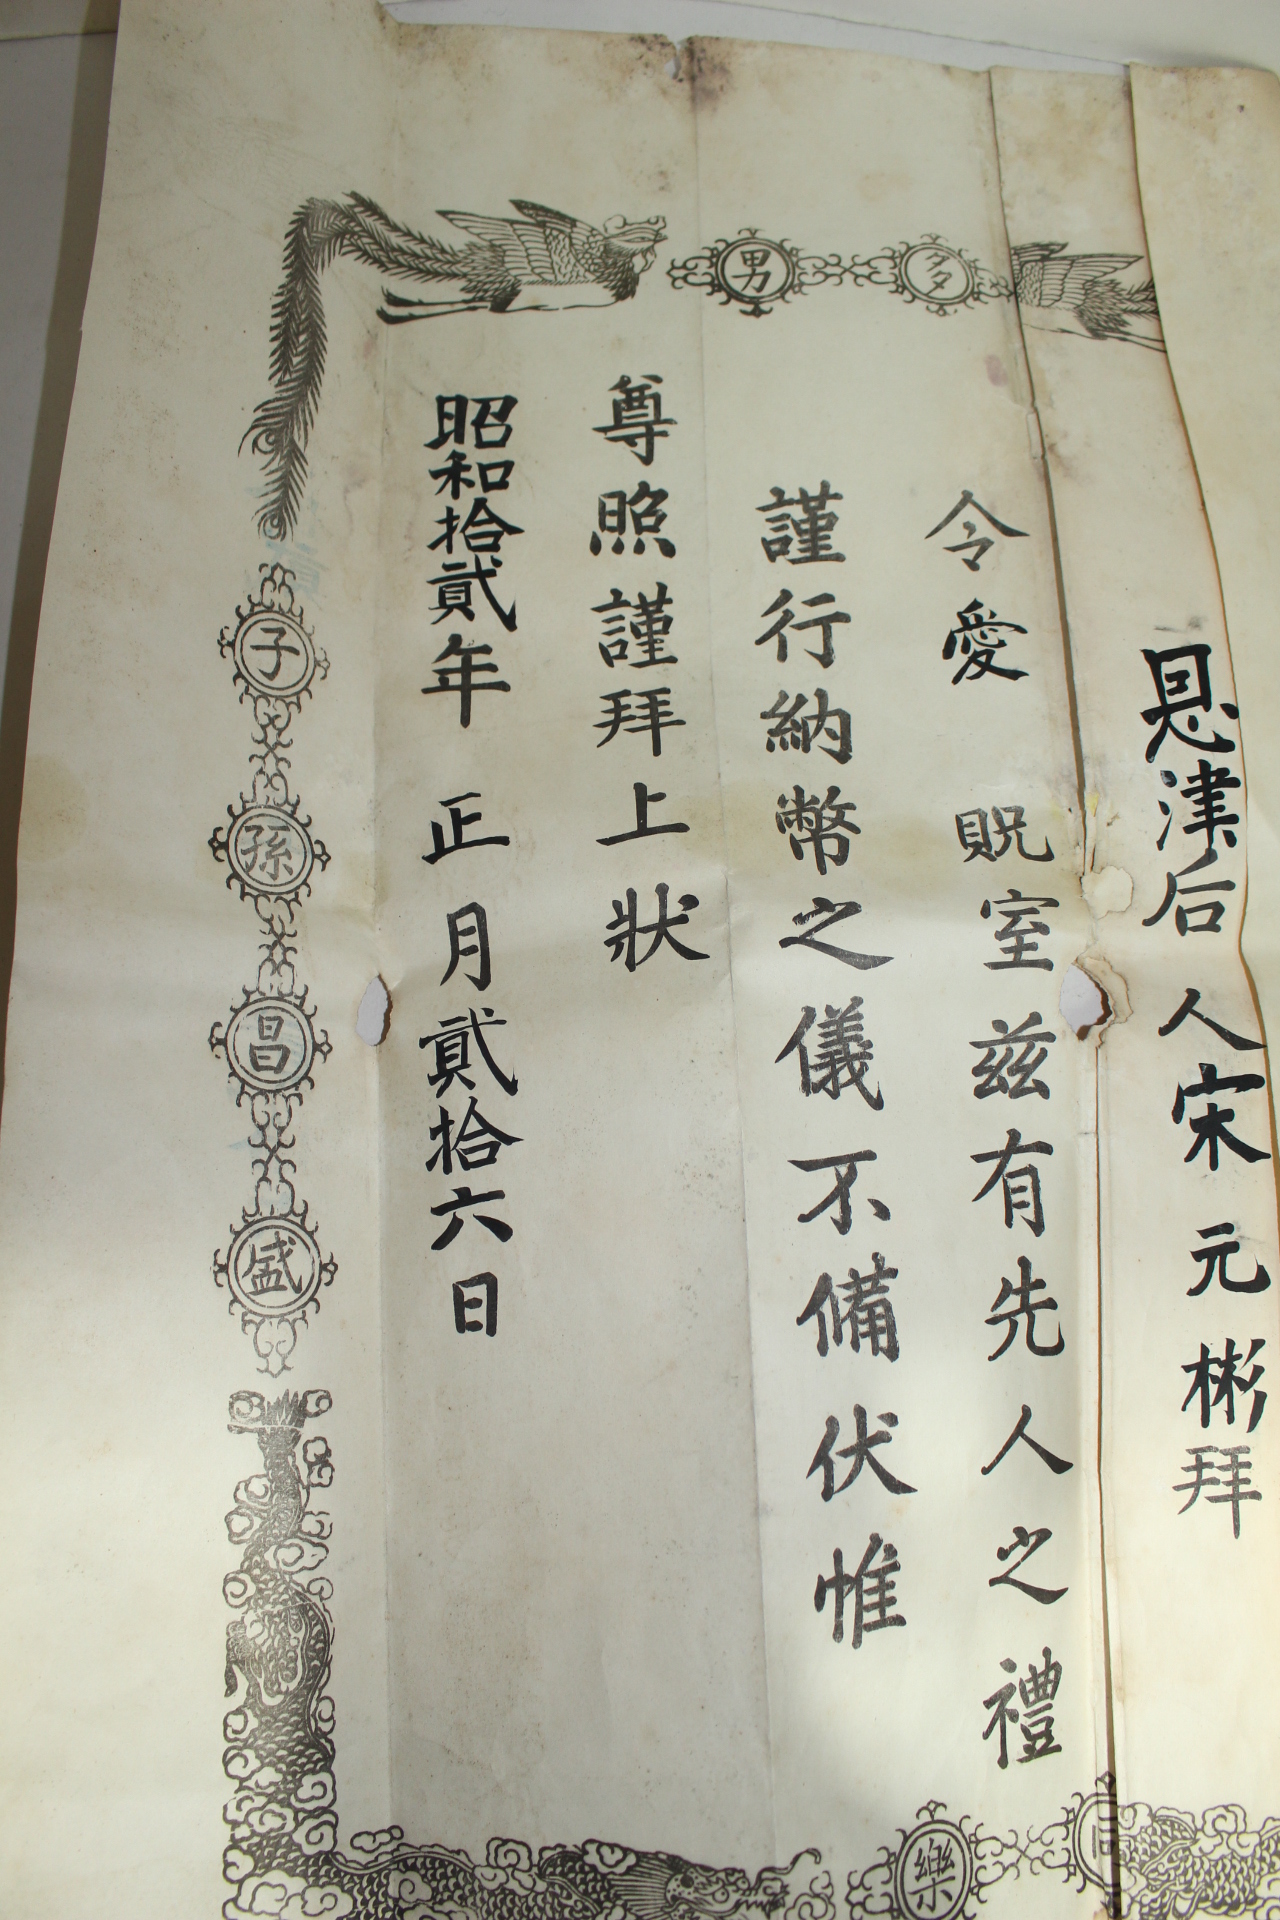 多男
恩津后人宋元彬拜
令愛 貺室茲有先人之禮
謹行納幣之儀不備伏惟
尊照謹拜上狀
昭和拾貳年 正月貳拾六日
子孫昌盛
樂